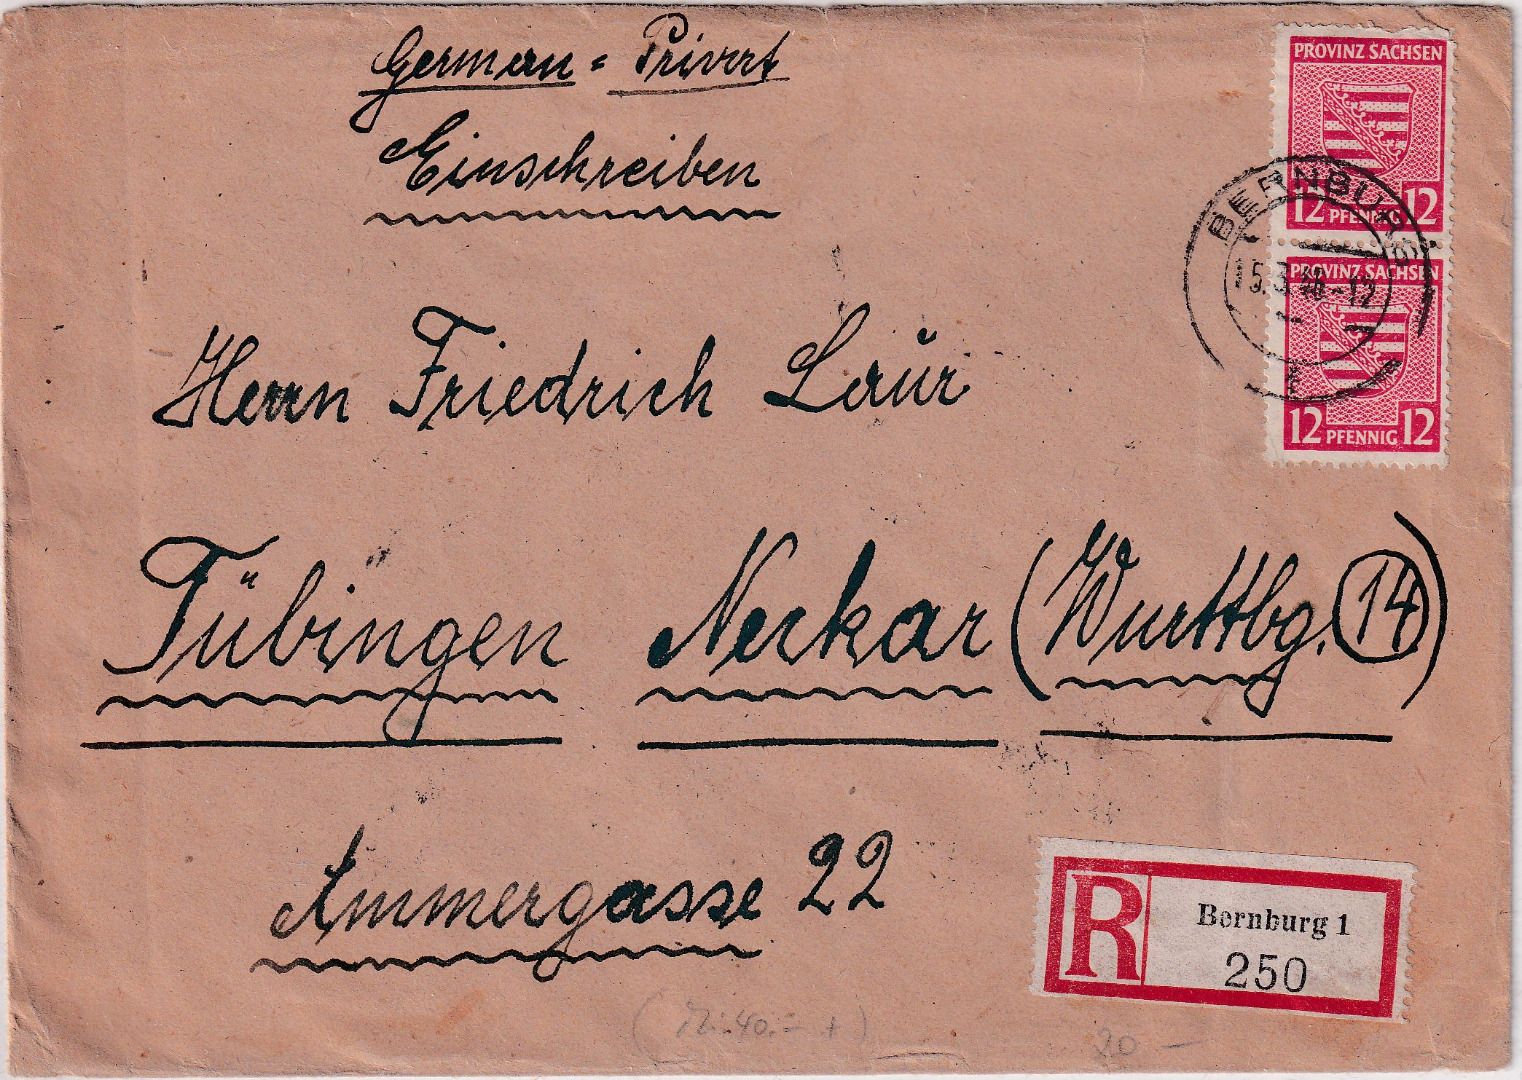 German = Privat
Einschreiben
PROVINZ SACHSEN
12 PFENNIG 12
BERNBURG
PROVINZ SACHSEN
12 PFENNIG 12
Herrn Friedrich Laur
Tübingen Neckar (Wurttbg. 14)
Ammergasse 22
R Bernburg 1
250